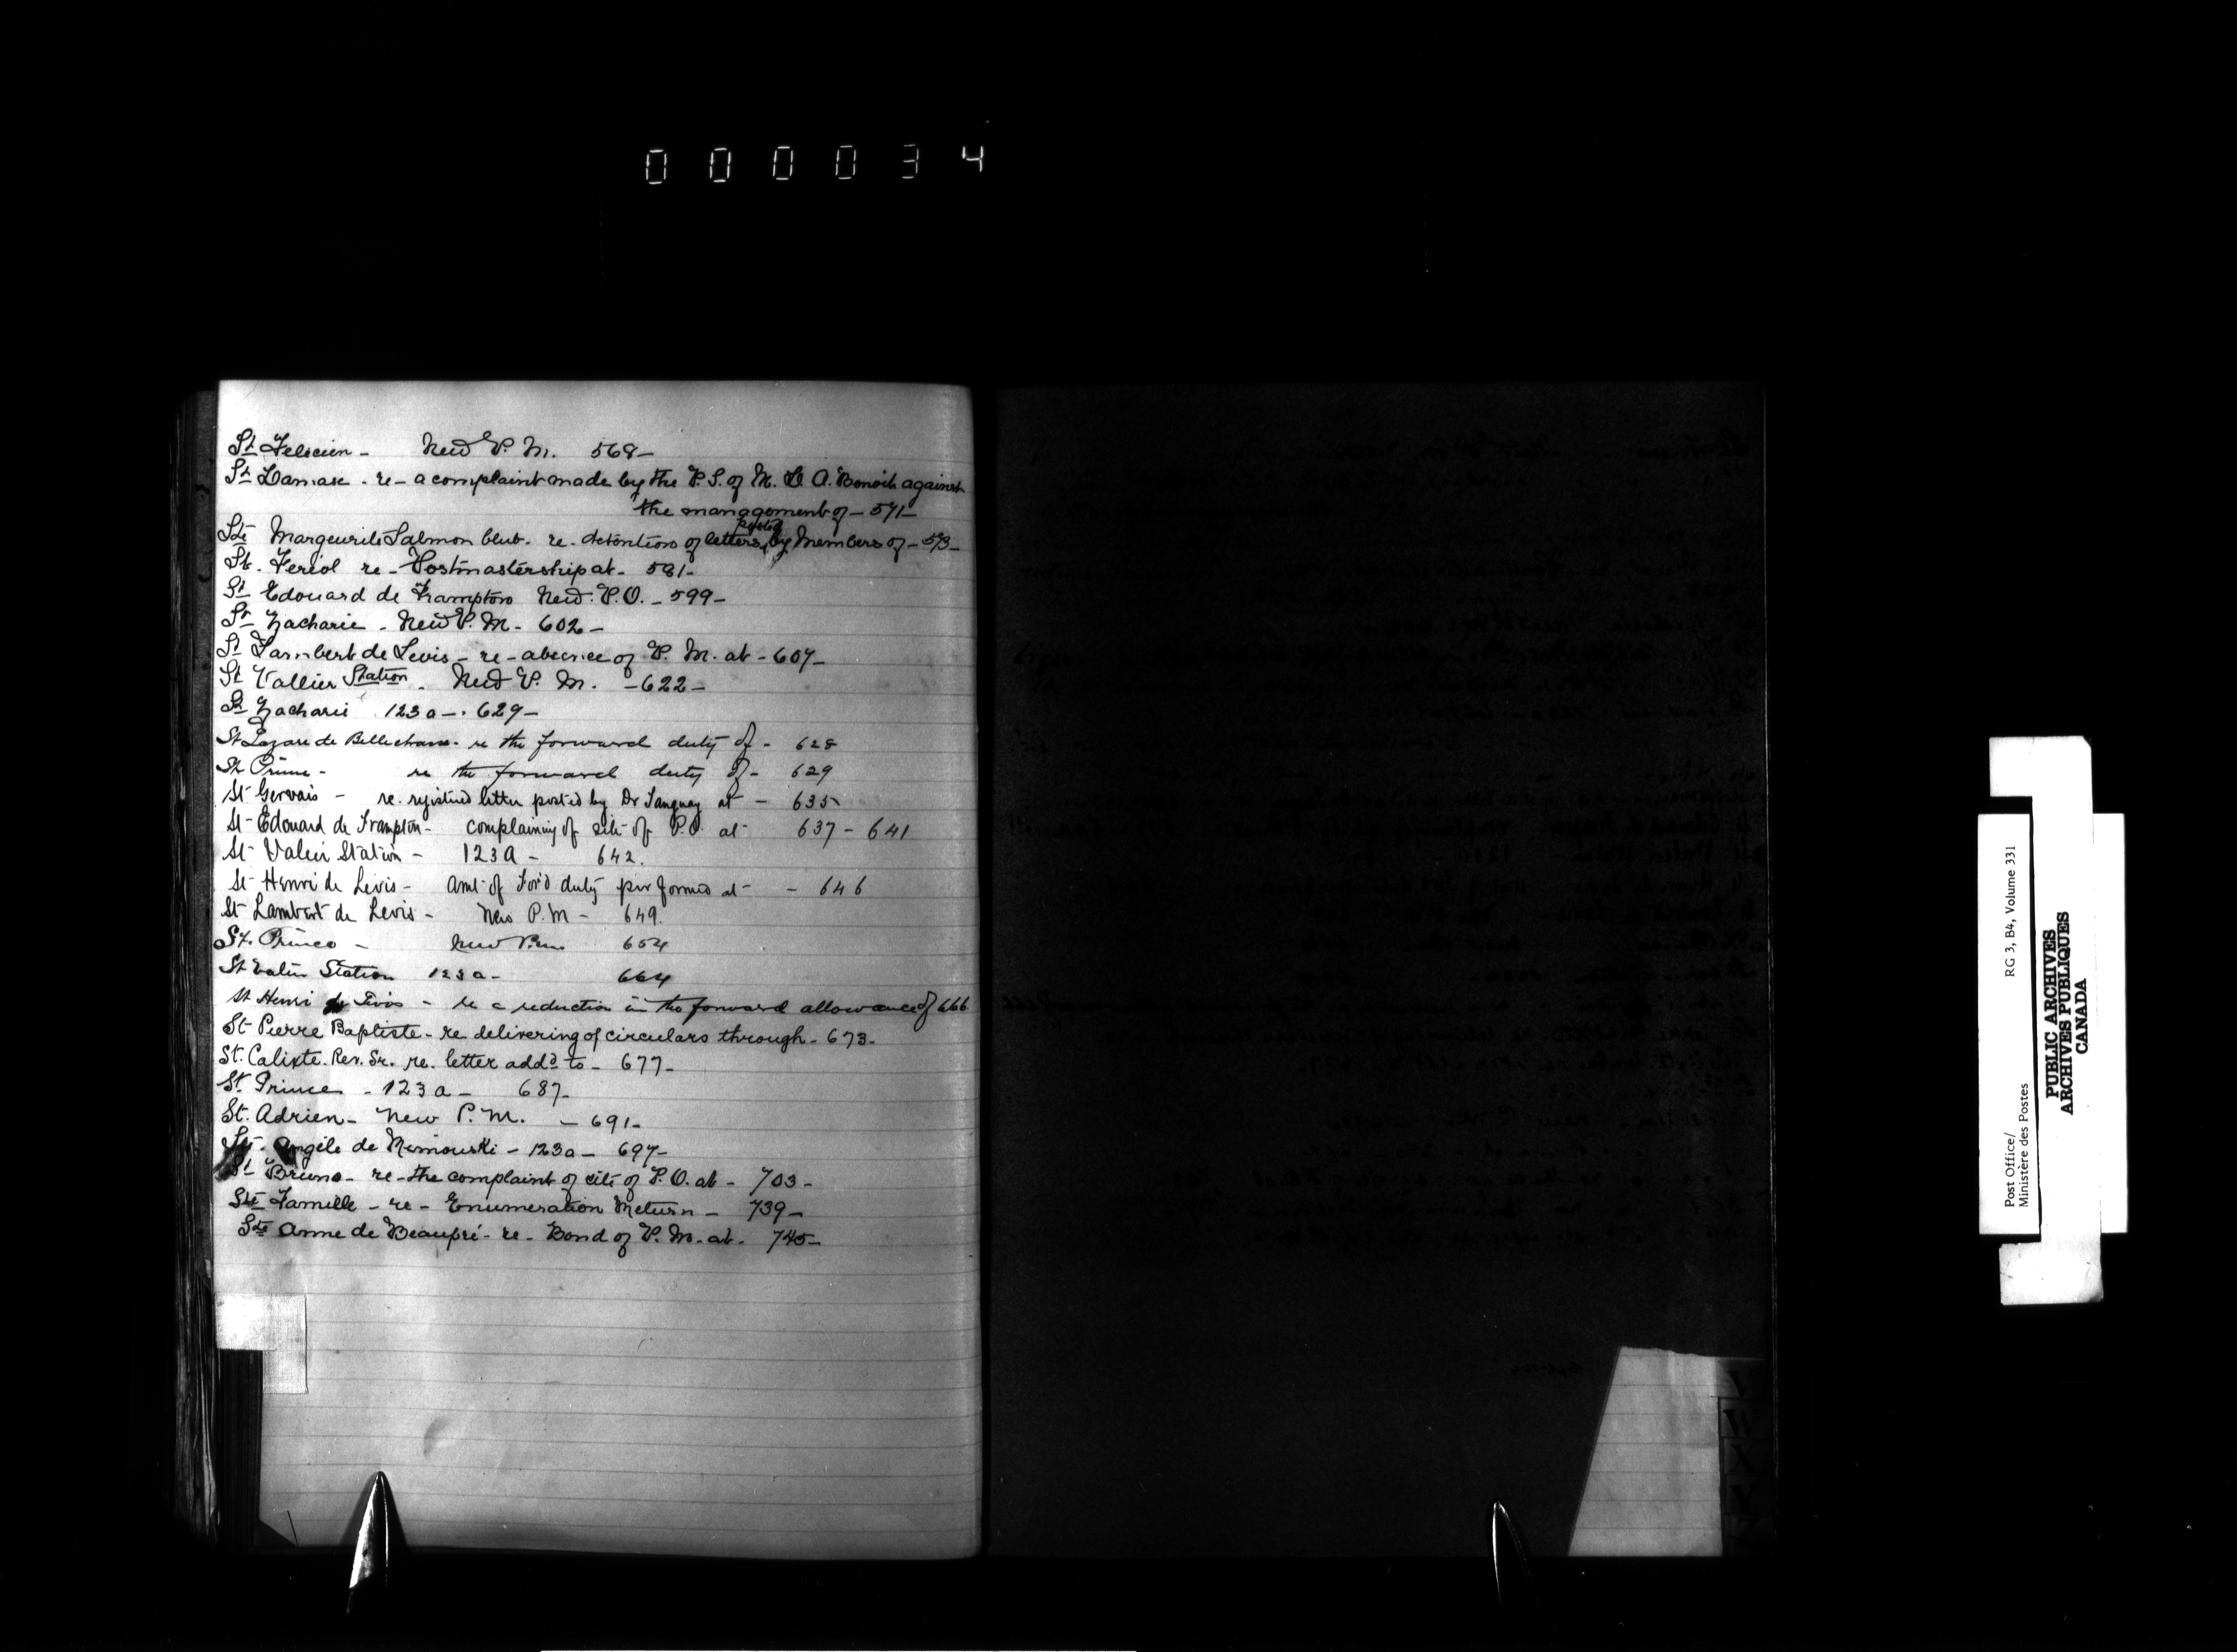 000034
St Felicien - New P. M. 568-
St Damase - re - a complaint made by the P.S. of M. L. A. Benoit against
the management of - 571-
Ste Margeurite Salmon Club. re. detention of letters posted by Members of - 573-
St. Feriol re - Postmastership at - 581-
St Edouard de Frampton New. P.O. - 599-
St Zacharie - New P. M - 602-
St Lambert de Levis - re - absence of P. M. at - 607-
St Vallier Station - New P. M. - 622-
St Zacharie 123a - . 629-
St Lazare de Bellechasse - re the forward duty of - 628
St Prime - re the forward duty of - 629
St Gervais - re. registered letter posted by Dr Tanguay at - 635
St Edouard de Frampton - complaining of site of P.O. at - 637 - 641
St Valier Station - 123A - 642.
St Henri de Levis - Amt of For'd duty performed at - - 646
St Lambert de Levis - New P.M - 649.
St. Prince - New P.M. 654
St Valier Station 123a - 664
St Henri de Levis - re a reduction in the forward allowance of 666
St Pierre Baptiste - re delivering of circulars through - 673-
St. Calixte. Rev. Sr. re. letter add'd to - 677-
St. Prince - 123a - 687-
St. Adrien - New P. M. - 691-
St. Angèle de Rimouski - 123a - 697-
St Bruno - re - the complaint of site of P.O. at - 703-
Ste Famille - re - Enumeration Return - 739-
Ste Anne de Beaupré - re - Bond of P. M. at - 745-
V
W
X
Y
Z
Post Office/ RG 3, B4, Volume 331
Ministère des Postes
PUBLIC ARCHIVES
ARCHIVES PUBLIQUES
CANADA